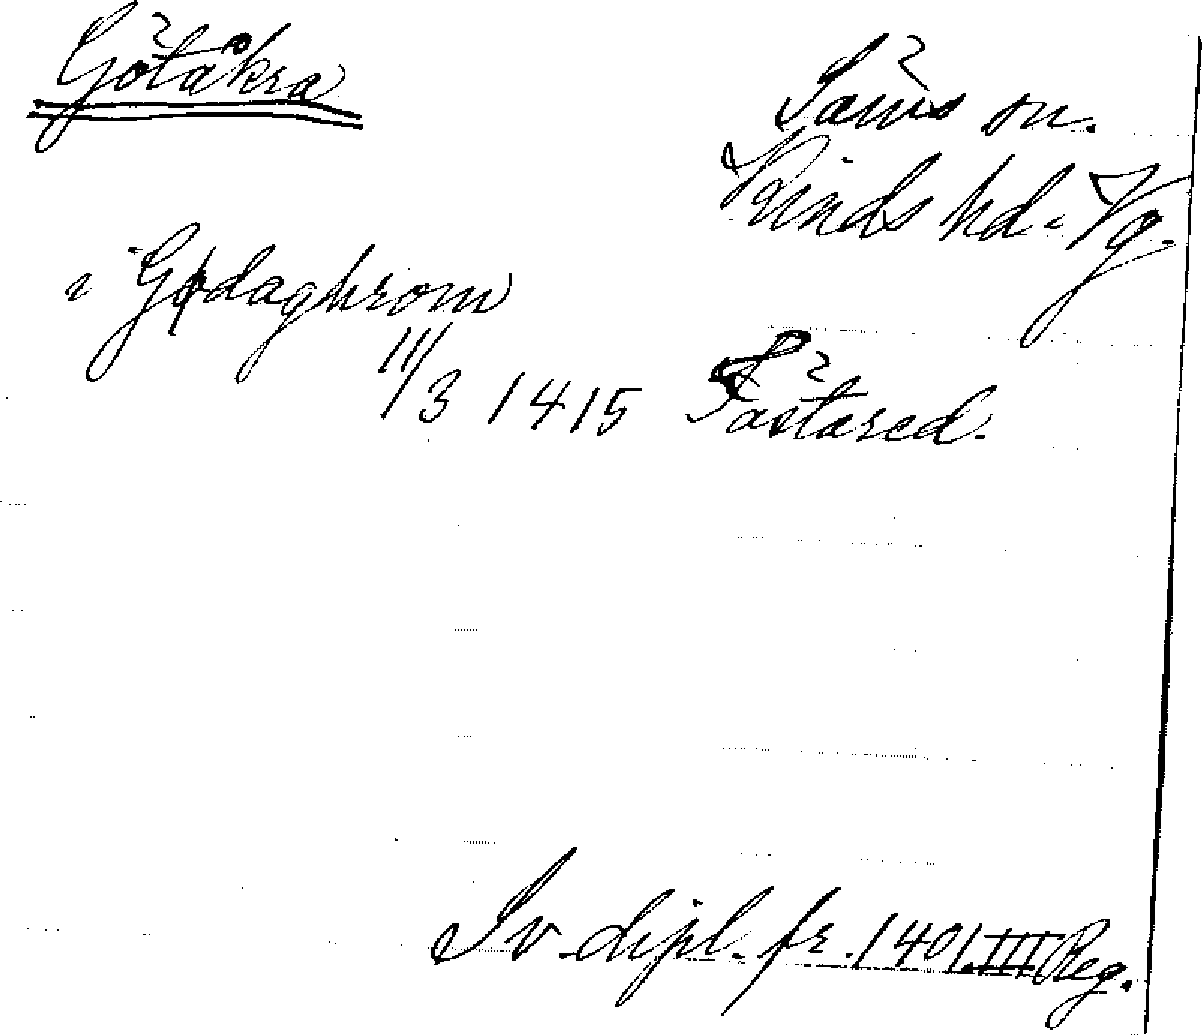 Götåkra
Säms sn.
Kinds hd. Vg.
i Gødaghrom
11/3 1415 Fästäred.
Sv. dipl. fr. 1401. III Reg.